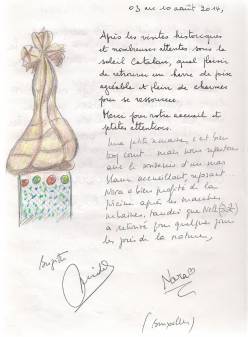 03 au 10 août 2014,
Après les visites historiques
et nombreuses attentes sous le
soleil Catalan, quel plaisir
de retrouver un havre de paix
agréable et plein de charmes
pour se ressourcer.
Merci pour votre accueil et
petites attentions.
Une petite semaine, c'est bien
trop court mais nous repartons
avec le souvenir d'un mas
blanc accueillant reposant.
Nora a bien profité de la
piscine après les marches
urbaines, tandis que
a retrouvé pour quelques jours
les joies de la nature,
Brigitte
Nora
(Bruxelles)